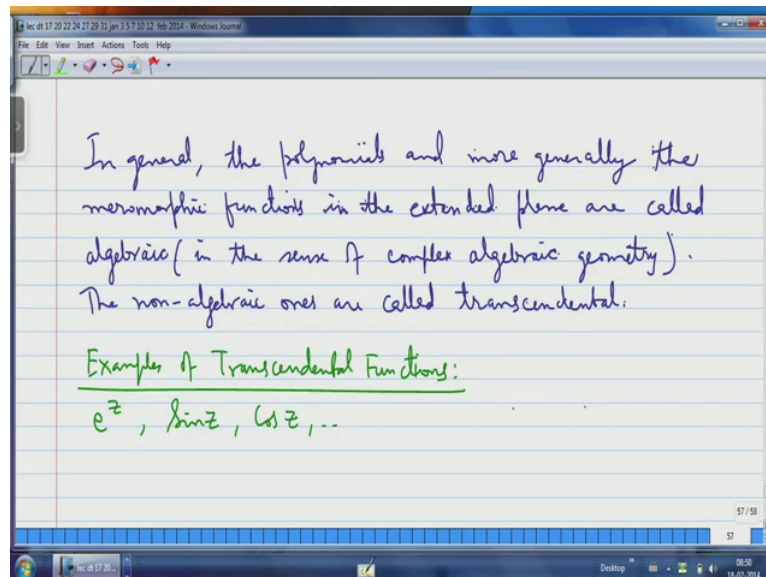 lec dt 17 20 22 24 27 29 31 jan 3 5 7 10 12 feb 2014 - Windows Journal
File Edit View Insert Actions Tools Help
In general, the polynomials and more generally the
meromorphic functions in the extended plane are called
algebraic (in the sense of complex algebraic geometry).
The non-algebraic ones are called transcendental.
Examples of Transcendental Functions:
e^z, Sin z, Cos z, ..
57 / 58
57
lec dt 17 20...
Desktop
08:50
18-02-2014